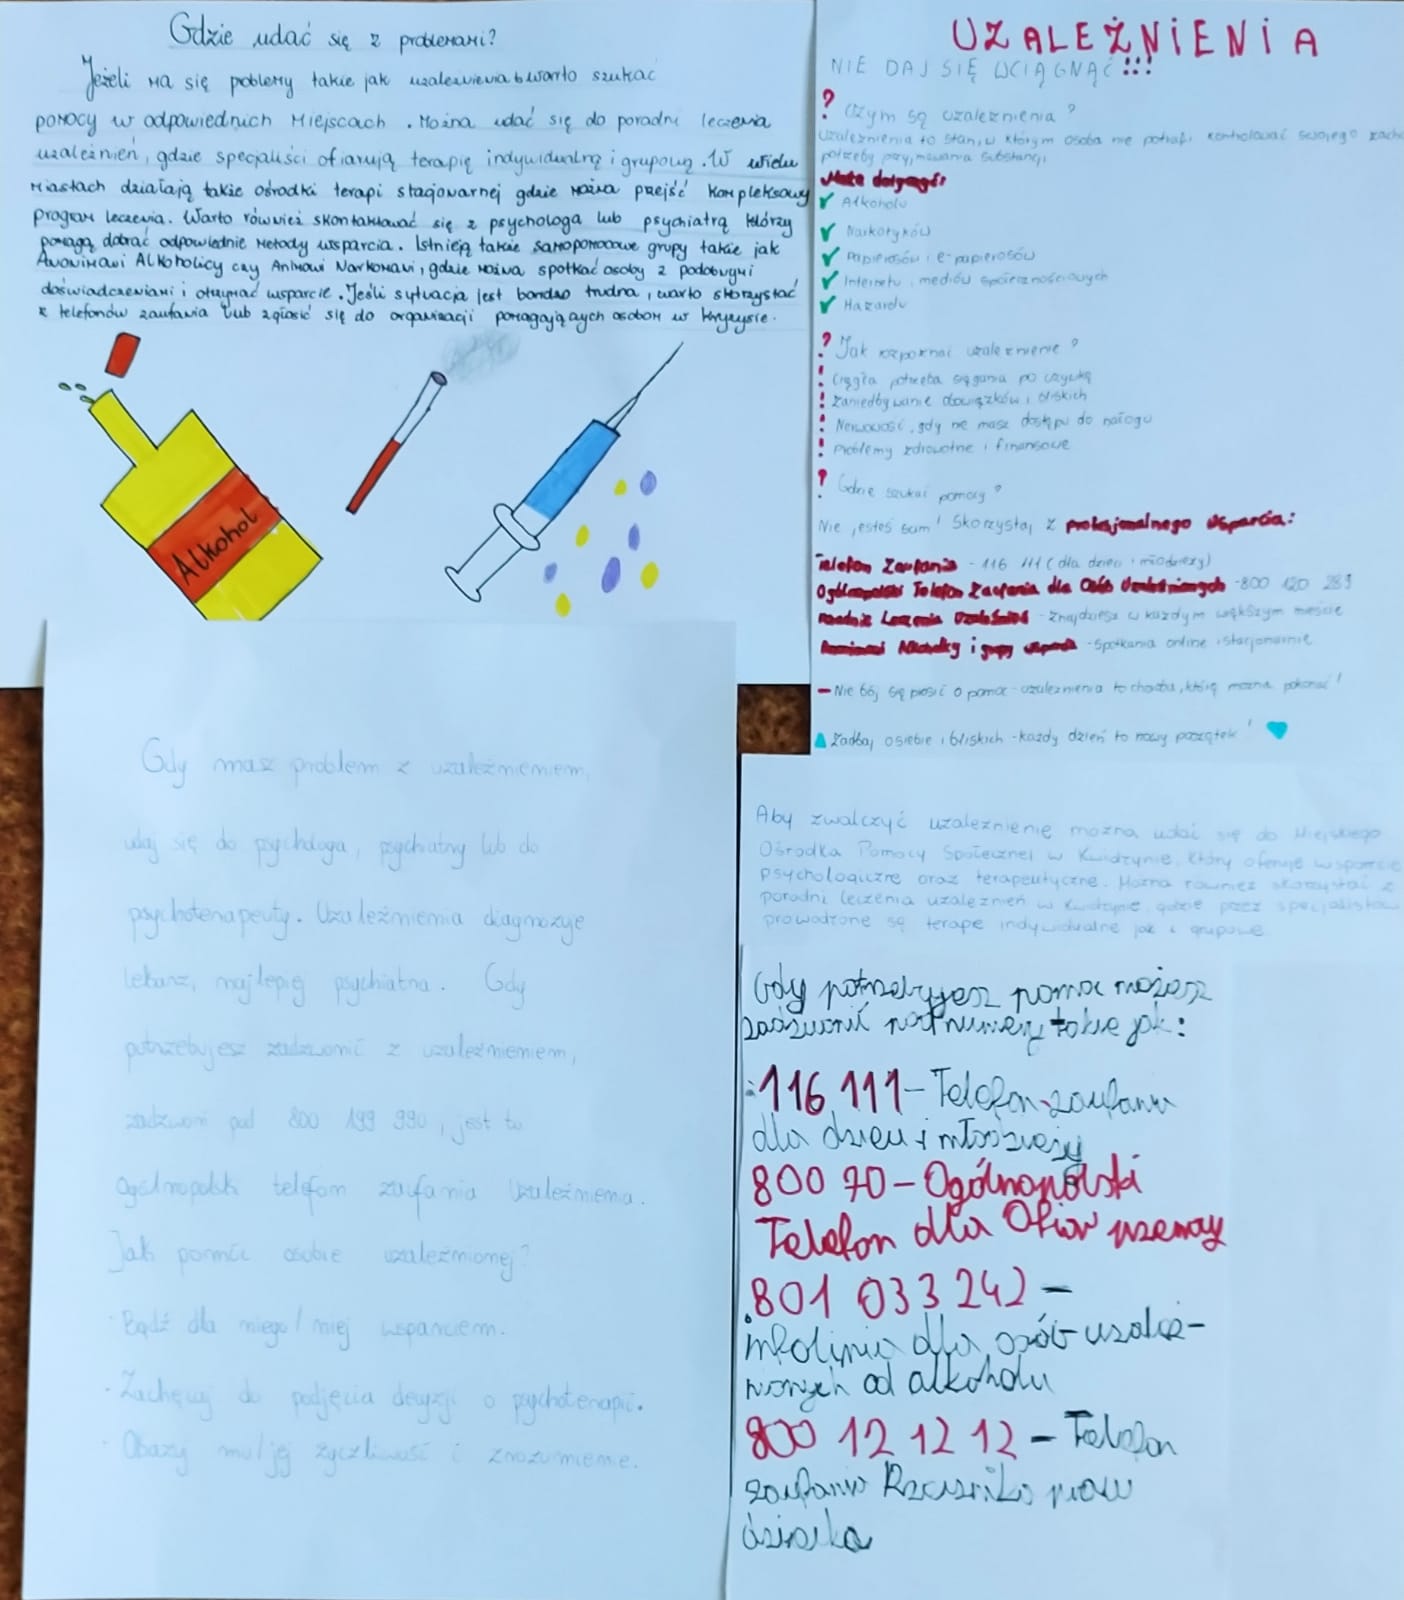 Gdzie udać się z problemami?
Jeżeli ma się problemy takie jak uzależnienia warto szukać
pomocy w odpowiednich miejscach. Można udać się do poradni leczenia
uzależnień, gdzie specjaliści ofiarują terapię indywidualną i grupową. W wielu
miastach działają takie ośrodki terapi stacjonarnej gdzie można przejść kompleksowy
program leczenia. Warto również skontaktować się z psychologa lub psychiatrą którzy
pomagą dobrać odpowiednie metody wsparcia. Istnieją takie samopomocowe grupy takie jak
Anonimowi Alkoholicy czy Animowi Narkomani, gdzie można spotkać osoby z podobnymi
doświadczeniami i otrzymać wsparcie. Jeśli sytuacja jest bardzo trudna, warto skorzystać
z telefonów zaufania lub zgłosić się do organizacji pomagających osobom w kryzysie.
Alkohol
UZALEŻNIENIA
NIE DAJ SIĘ WCIĄGNĄĆ!!!
? Czym są uzależnienia?
Uzależnienia to stan, w którym osoba nie potrafi kontrolować swojego
potrzeby przyjmowania substancji
Może dotyczyć:
Alkoholu
Narkotyków
Papierosów i e-papierosów
Internetu i mediów społecznościowych
Hazardu
? Jak rozpoznać uzależnienie?
! Ciągła potrzeba sięgania po używkę
! Zaniedbywanie obowiązków i bliskich
! Nerwowość, gdy nie masz dostępu do nałogu
! Problemy zdrowotne i finansowe
? Gdzie szukać pomocy?
Nie jesteś sam! Skorzystaj z profesjonalnego wsparcia:
Telefon Zaufania - 116 111 (dla dzieci i młodzieży)
Ogólnopolski Telefon Zaufania dla Osób Uzależnionych - 800 120 289
Poradnie Leczenia Uzależnień - Znajdziesz w każdym większym mieście
Anonimowi Alkoholicy i grupy wsparcia - Spotkania online i stacjonarnie
- Nie bój się prosić o pomoc - uzależnienia to choroba, którą można pokonać!
Zadbaj o siebie i bliskich - każdy dzień to nowy początek!
Gdy masz problem z uzależnieniem,
udaj się do psychologa, psychiatry lub do
psychoterapeuty. Uzależnienia diagnozuje
lekarz, najlepiej psychiatra. Gdy
potrzebujesz zadzwonić z uzależnieniem,
zadzwoń pod 800 199 990, jest to
Ogólnopolski telefon zaufania Uzależnienia.
Jak pomóc osobie uzależnionej?
· Bądź dla niego/niej wsparciem.
· Zachęcaj do podjęcia decyzji o psychoterapii.
· Okazuj mu/jej życzliwość i zrozumienie.
Aby zwalczyć uzależnienie można udać się do Miejskiego
Ośrodka Pomocy Społecznej w Kwidzynie, który oferuje wsparcie
psychologiczne oraz terapeutyczne. Można również skorzystać z
poradni leczenia uzależnień w Kwidzynie, gdzie przez specjalistów
prowadzone są terapie indywidualne jak i grupowe.
Gdy potrzebujesz pomoc możesz
zadzwonić pod numery takie jak:
116 111 - Telefon zaufania
dla dzieci i młodzieży
800 70 - Ogólnopolski
Telefon dla Ofiar przemocy
801 033 242 -
infolinia dla osób uzależ-
nionych od alkoholu
800 12 12 12 - Telefon
zaufania Rzecznika praw
dziecka